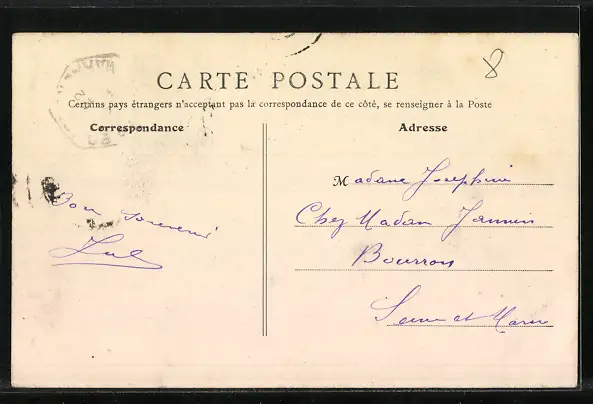 8
CARTE POSTALE
Certains pays étrangers n'acceptant pas la correspondance de ce côté, se renseigner à la Poste
Correspondance
Adresse
Bon souvenir
Madame Joséphine
Chez Madam
Bourron
Seine et Marne